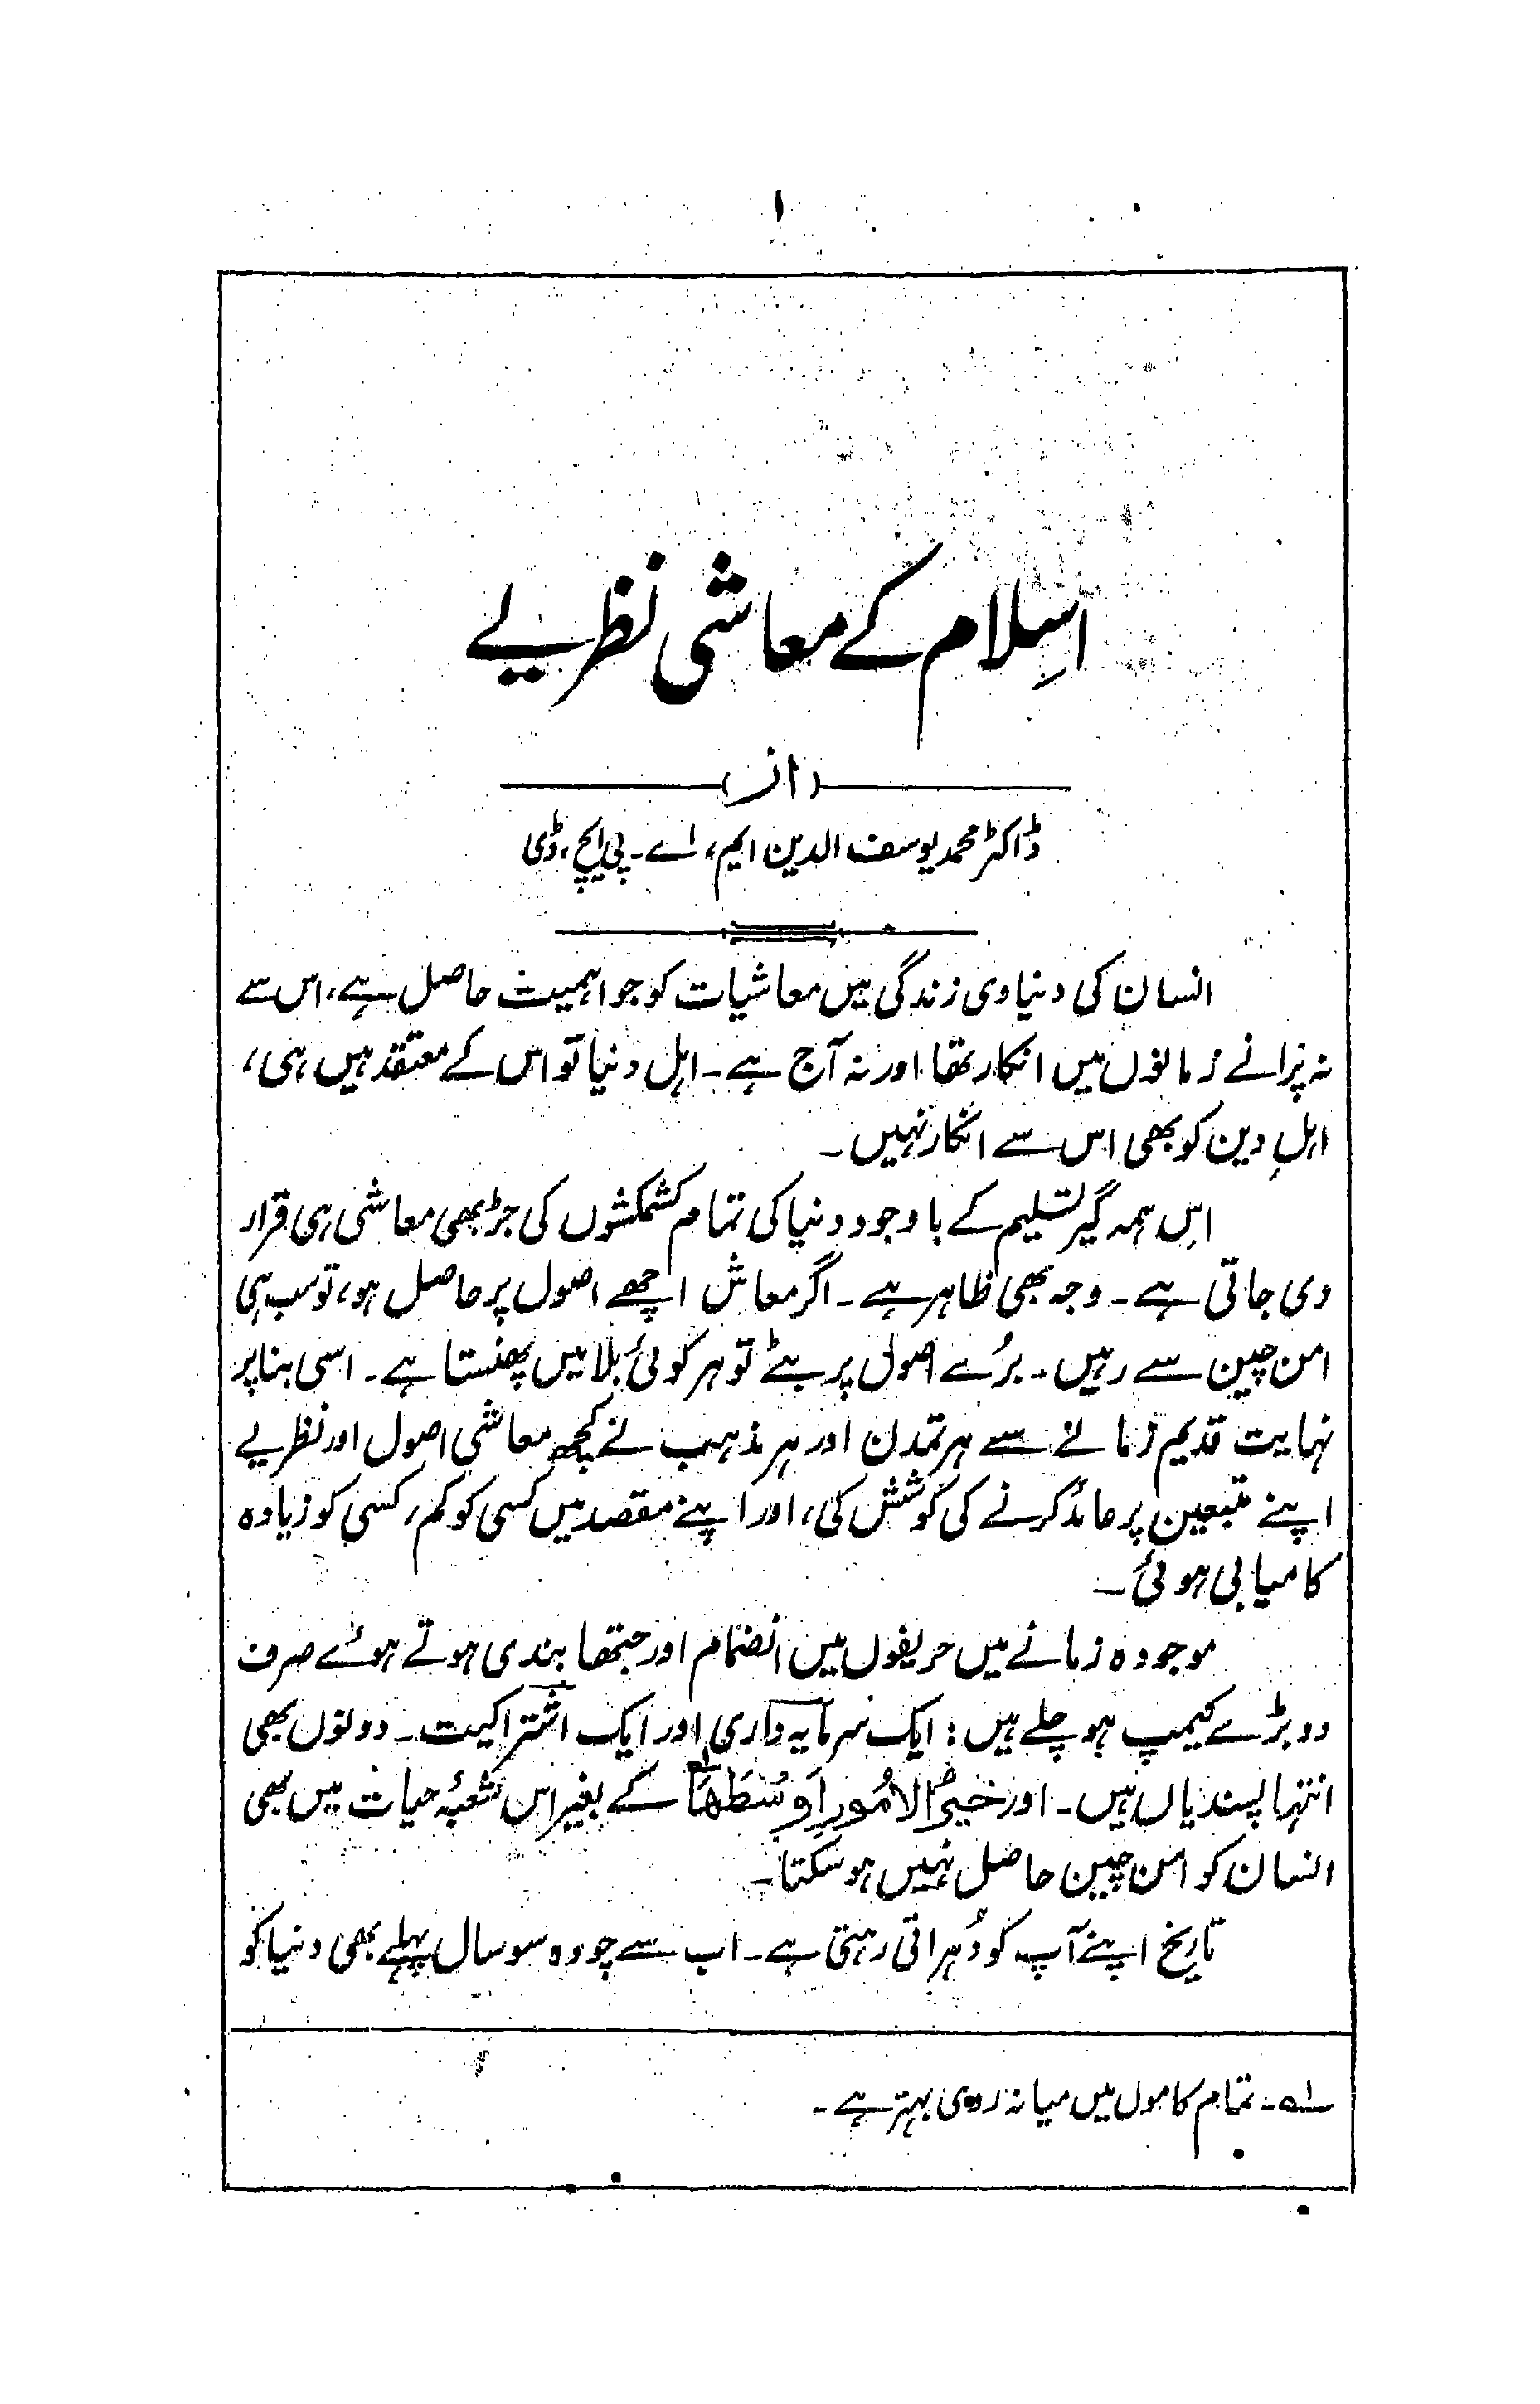 ۱
اسِلام کے معاشی نظریے
(از)
ڈاکٹر محمد یوسف الدین ایم، اے۔ پی ایچ، ڈی
انسان کی دنیاوی زندگی میں معاشیات کو جو اہمیت حاصل ہے، اس سے
نہ پُرانے زمانوں میں انکار تھا اور نہ آج ہے۔ اہل دنیا تو اس کے معتقد ہیں ہی،
اہلِ دین کو بھی اس سے انکار نہیں۔
اِس ہمہ گیر تسلیم کے باوجود دنیا کی تمام کشمکشوں کی جڑ بھی معاشی ہی قرار
دی جاتی ہے۔ وجہ بھی ظاہر ہے۔ اگر معاش اچھے اصول پر حاصل ہو، تو سب ہی
امن چین سے رہیں۔ بُرے اصول پر بٹے تو ہر کوئی بلا میں پھنستا ہے۔ اسی بنا پر
نہایت قدیم زمانے سے ہر تمدن اور ہر مذہب نے کچھ معاشی اصول اور نظریے
اپنے متبعین پر عائد کرنے کی کوشش کی، اور اپنے مقصد میں کسی کو کم، کسی کو زیادہ
کامیابی ہوئی۔
موجودہ زمانے میں حریفوں میں انضمام اور جتھا بندی ہوتے ہوئے صرف
دو بڑے کیمپ ہو چلے ہیں: ایک سرمایہ داری اور ایک اشتراکیت۔ دونوں بھی
انتہا پسندیاں ہیں۔ اور خَیرُ الامُورِ اَوسُطَھَا ؎۱ کے بغیر اس شعبۂ حیات میں بھی
انسان کو امن چین حاصل نہیں ہو سکتا۔
تاریخ اپنے آپ کو دُہراتی رہتی ہے۔ اب سے چودہ سو سال پہلے بھی دنیا کو
؎۱۔ تمام کاموں میں میانہ روی بہتر ہے۔